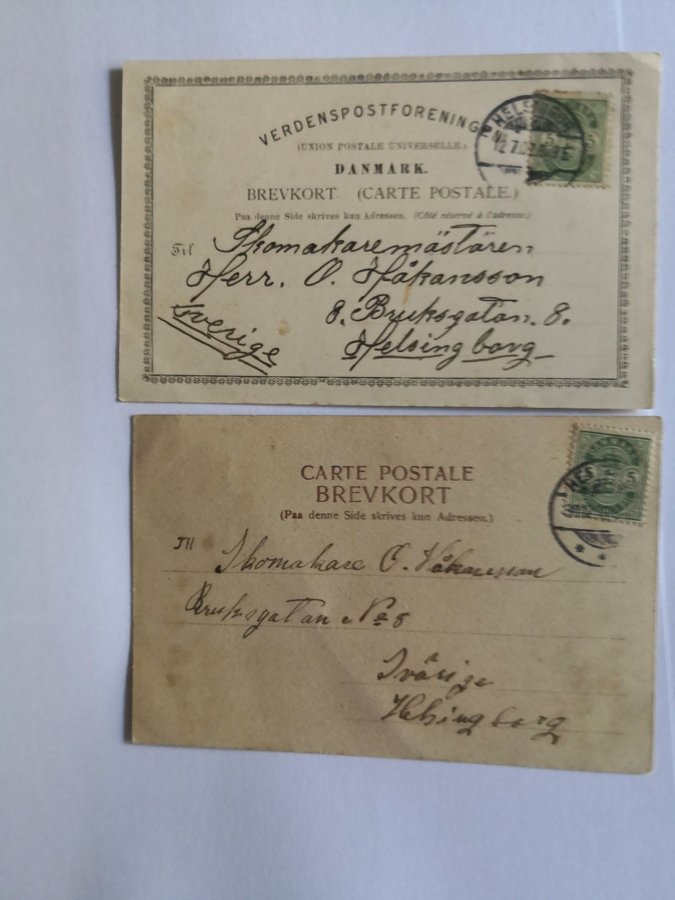 VERDENSPOSTFORENING
(UNION POSTALE UNIVERSELLE.)
DANMARK.
BREVKORT. (CARTE POSTALE.)
Paa denne Side skrives kun Adressen. (Côté réservé à l'adresse.)
Til Skomakaremästaren
Herr. O. Håkansson
8. Bruksgatan. 8.
Sverige
Helsingborg
5
CARTE POSTALE
BREVKORT
(Paa denne Side skrives kun Adressen.)
5
Til Skomakare O. Håkansson
Bruksgatan No 8
Svärige
Helsingborg